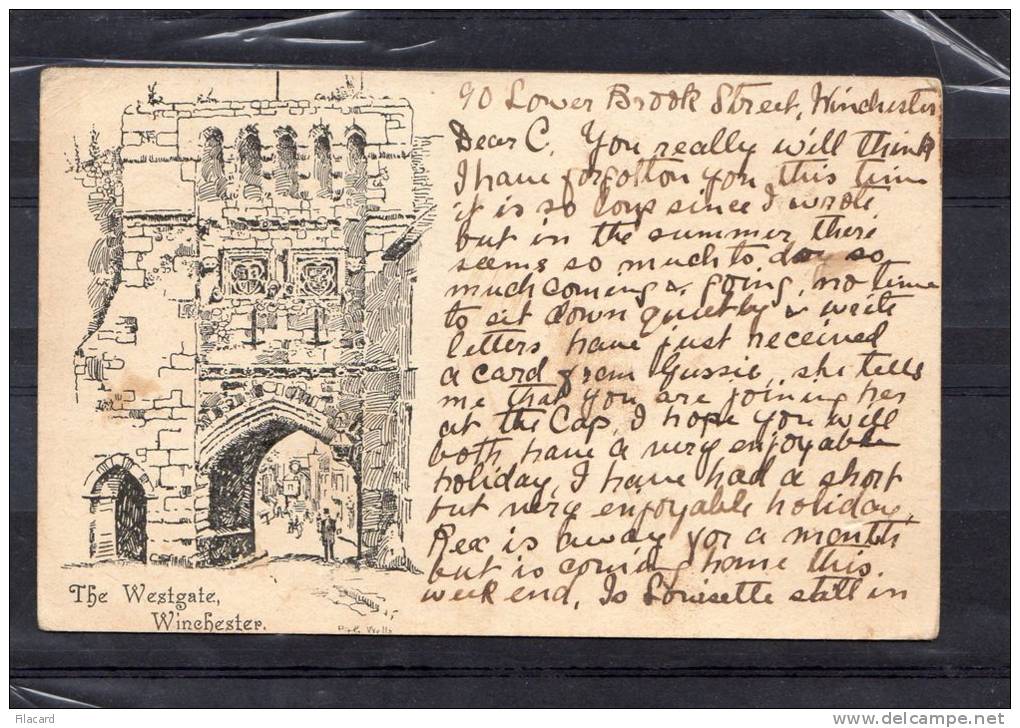 90 Lower Brook Street, Winchester
Dear C, You really will think
I have forgotton you this time
it is so long since I wrote
but in the summer there
seems so much to do so
much coming & going, no time
to sit down quietly & write
letters have just received
a card from Gussie, she tells
me that you are joining her
at the Cap, I hope you will
both have a very enjoyable
holiday, I have had a short
but very enjoyable holiday,
Rex is away for a month
but is coming home this
week end, Is Louisette still in
The Westgate,
Winchester.
Wells
Filacard
www.delcampe.net